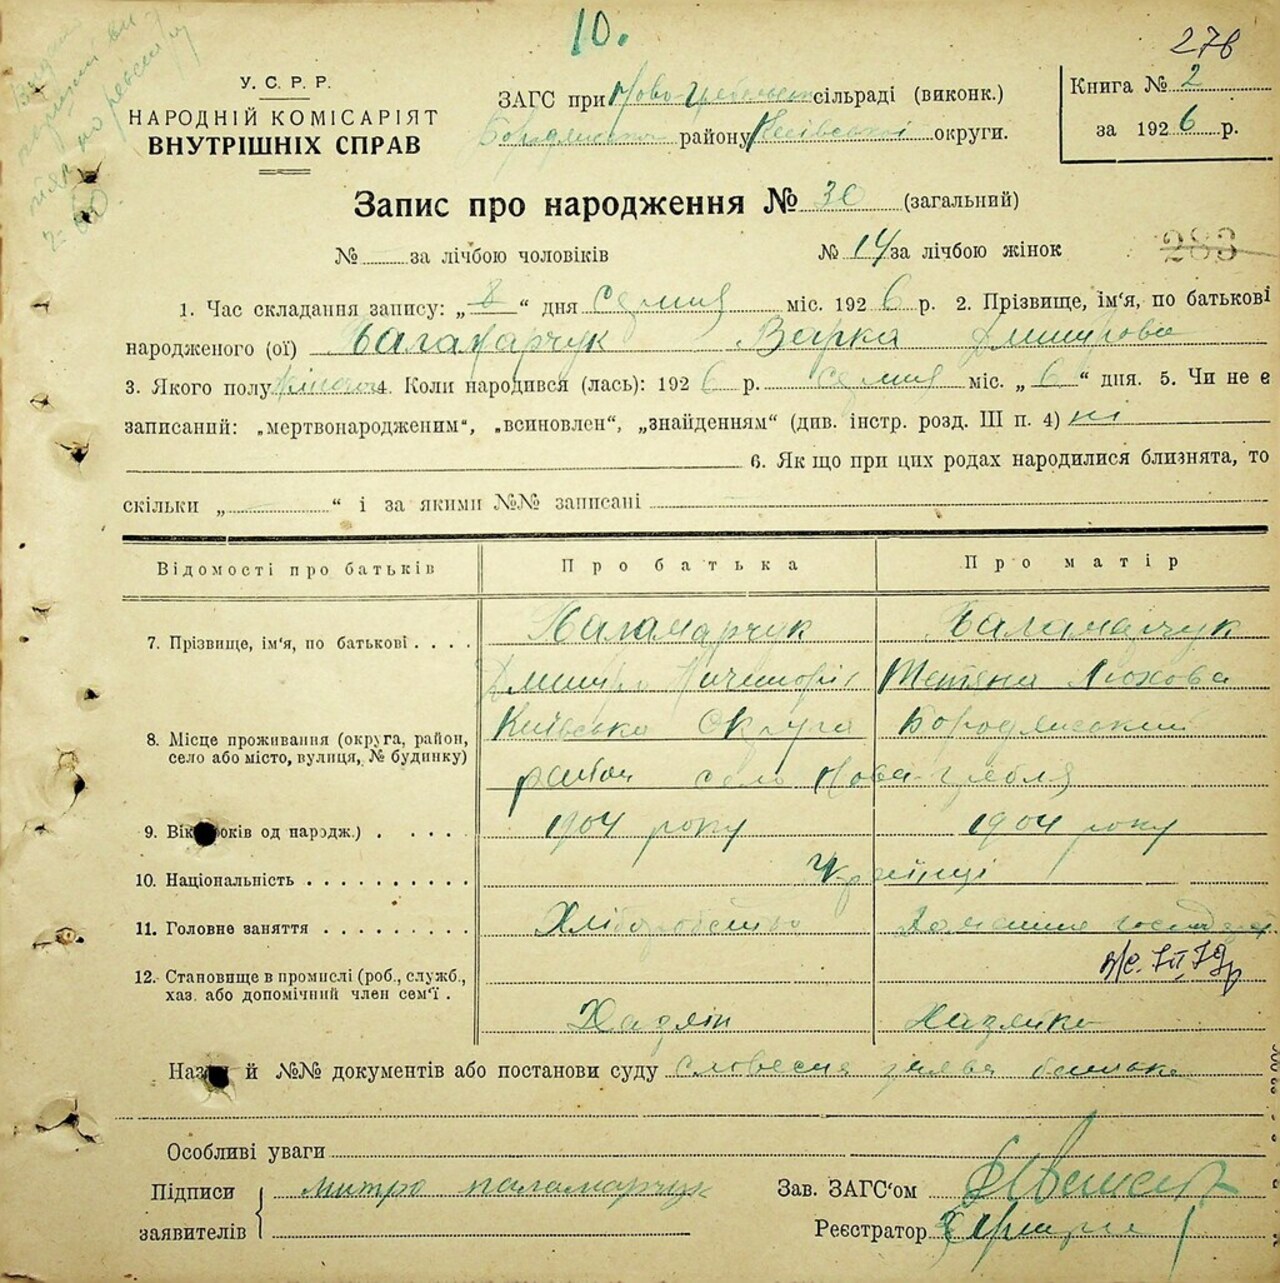 10.
276
У. С. Р. Р.
НАРОДНІЙ КОМІСАРІЯТ
ВНУТРІШНІХ СПРАВ
ЗАГС при Ново-Гребельськ сільраді (виконк.)
Бородянсько району Київської округи.
Книга № 2
за 1926 р.
Запис про народження № 30 (загальний)
№ — за лічбою чоловіків № 14 за лічбою жінок
283
1. Час складання запису: „ 8 “ дня Серпня міс. 1926 р. 2. Прізвище, ім'я, по батькові
народженого (ої) Паламарчук Варка Дмитрова
3. Якого полу жіночої 4. Коли народився (лась): 1926 р. серпня міс. „ 6 “ дня. 5. Чи не є
записаний: „мертвонародженим“, „всиновлен“, „знайденням“ (див. інстр. розд. III п. 4) ні
6. Як що при цих родах народилися близнята, то
скільки „ — “ і за якими №№ записані
Відомості про батьків Про батька Про матір
7. Прізвище, ім'я, по батькові . . . . Паламарчук Паламарчук
Дмитро Тетяна
8. Місце проживання (округа, район, село або місто, вулиця, № будинку) Київсько Округа Бородянський
район село Нова-Гребля
9. Вік років од народж.) . . . . . 1904 року 1904 року
10. Національність . . . . . . . . . . Українці
11. Головне заняття . . . . . . . . . Хліборобство Домашнє господар
12. Становище в промислі (роб., служб., хаз. або допомічний член сем'ї .
Хазяін Хазяйка
Назви й №№ документів або постанови суду словесна заява батька
Особливі уваги
Підписи заявителів митро паламарчук
Зав. ЗАГС'ом
Реєстратор